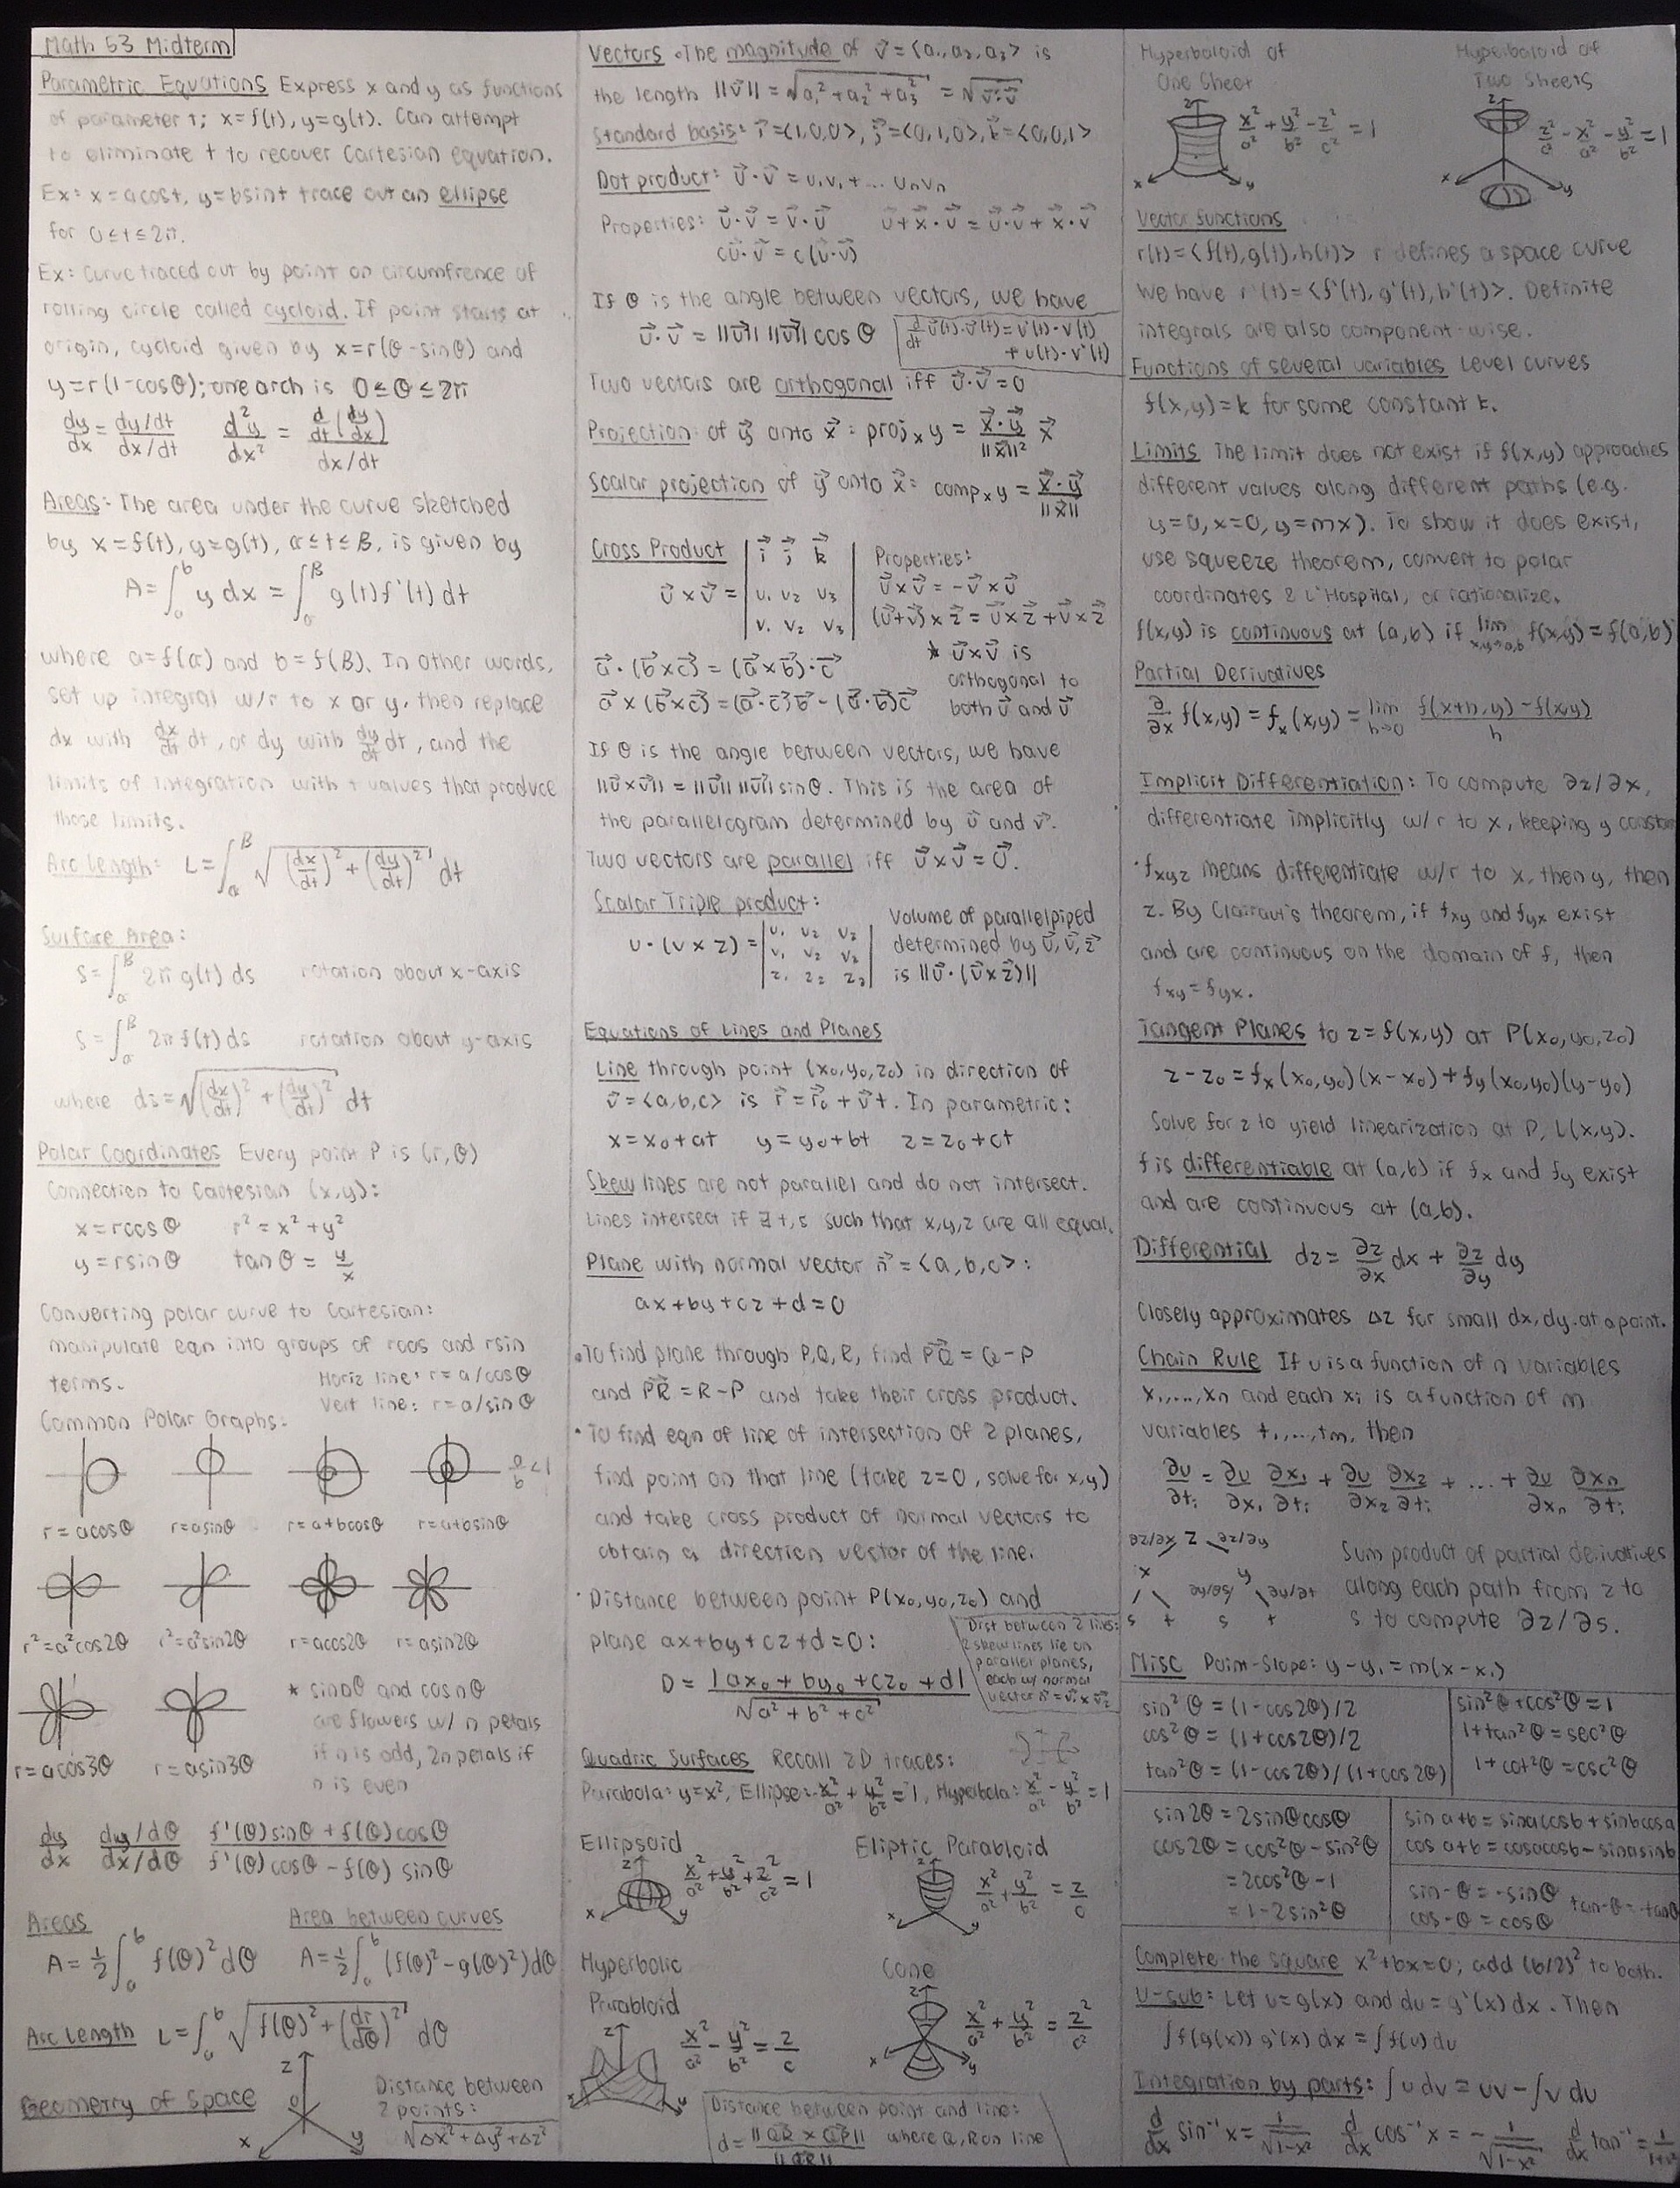 Math 53 Midterm
Parametric Equations Express x and y as functions
of parameter t; x=f(t), y=g(t). Can attempt
to eliminate t to recover Cartesian equation.
Ex: x=acost, y=bsint trace out an ellipse
for 0≤t≤2π.
Ex: Curve traced out by point on circumfrence of
rolling circle called cycloid. If point starts at
origin, cycloid given by x=r(θ-sinθ) and
y=r(1-cosθ); one arch is 0≤θ≤2π
dy/dx = (dy/dt)/(dx/dt) d²y/dx² = (d/dt(dy/dx))/(dx/dt)
Areas: The area under the curve sketched
by x=f(t), y=g(t), α≤t≤β, is given by
A=∫_a^b y dx = ∫_α^β g(t)f'(t)dt
where a=f(α) and b=f(β). In other words,
set up integral w/r to x or y, then replace
dx with dx/dt dt, or dy with dy/dt dt, and the
limits of integration with t values that produce
those limits.
Arc Length: L=∫_α^β √((dx/dt)²+(dy/dt)²) dt
Surface Area:
S=∫_α^β 2π g(t) ds rotation about x-axis
S=∫_α^β 2π f(t) ds rotation about y-axis
where ds=√((dx/dt)²+(dy/dt)²) dt
Polar Coordinates Every point P is (r,θ)
Connection to Cartesian (x,y):
x=rcosθ r²=x²+y²
y=rsinθ tanθ = y/x
Converting polar curve to Cartesian:
manipulate eqn into groups of rcos and rsin
terms. Horiz line: r=a/cosθ
Vert line: r=a/sinθ
Common Polar Graphs:
a/b<1
r=acosθ r=asinθ r=a+bcosθ r=a+bsinθ
r²=a²cos2θ r²=a²sin2θ r=acos2θ r=asin2θ
* sinnθ and cosnθ
are flowers w/ n petals
if n is odd, 2n petals if
n is even
r=acos3θ r=asin3θ
dy/dx (dy/dθ)/(dx/dθ) (f'(θ)sinθ+f(θ)cosθ)/(f'(θ)cosθ-f(θ)sinθ)
Areas Area between curves
A=½∫_a^b f(θ)²dθ A=½∫_a^b (f(θ)²-g(θ)²)dθ
Arc Length L=∫_a^b √(f(θ)²+(dr/dθ)²) dθ
Geometry of Space z 0 x y
Distance between
2 points:
√(Δx²+Δy²+Δz²)
Vectors • The magnitude of v⃗=<a₁,a₂,a₃> is
the length ||v⃗||=√(a₁²+a₂²+a₃²) = √(v⃗·v⃗)
Standard basis: i⃗=<1,0,0>, j⃗=<0,1,0>, k⃗=<0,0,1>
Dot product: u⃗·v⃗=u₁v₁+...uₙvₙ
Properties: u⃗·v⃗=v⃗·u⃗ u⃗+x⃗·v⃗=u⃗·v⃗+x⃗·v⃗
cu⃗·v⃗=c(u⃗·v⃗)
If θ is the angle between vectors, we have
u⃗·v⃗=||u⃗|| ||v⃗|| cosθ
d/dt u⃗(t)·v⃗(t)=u'(t)·v(t)
+u(t)·v'(t)
Two vectors are orthogonal iff u⃗·v⃗=0
Projection of y⃗ onto x⃗: proj_x y = (x⃗·y⃗)/||x⃗||² x⃗
Scalar projection of y⃗ onto x⃗: comp_x y = (x⃗·y⃗)/||x⃗||
Cross Product
u⃗×v⃗ = | i⃗ j⃗ k⃗ |
| u₁ u₂ u₃ |
| v₁ v₂ v₃ |
Properties:
u⃗×v⃗=-v⃗×u⃗
(u⃗+v⃗)×z⃗=u⃗×z⃗+v⃗×z⃗
* u⃗×v⃗ is
orthogonal to
both u⃗ and v⃗
a⃗·(b⃗×c⃗)=(a⃗×b⃗)·c⃗
a⃗×(b⃗×c⃗)=(a⃗·c⃗)b⃗-(a⃗·b⃗)c⃗
If θ is the angle between vectors, we have
||u⃗×v⃗||=||u⃗|| ||v⃗|| sinθ. This is the area of
the parallelogram determined by u⃗ and v⃗.
Two vectors are parallel iff u⃗×v⃗=0⃗.
Scalar Triple product:
u·(v×z)= | u₁ u₂ u₃ |
| v₁ v₂ v₃ |
| z₁ z₂ z₃ |
Volume of parallelpiped
determined by u⃗,v⃗,z⃗
is ||u⃗·(v⃗×z⃗)||
Equations of Lines and Planes
Line through point (x₀,y₀,z₀) in direction of
v⃗=<a,b,c> is r⃗=r⃗₀+v⃗t. In parametric:
x=x₀+at y=y₀+bt z=z₀+ct
Skew lines are not parallel and do not intersect.
Lines intersect if ∃ t,s such that x,y,z are all equal.
Plane with normal vector n⃗=<a,b,c>:
ax+by+cz+d=0
• To find plane through P,Q,R, find PQ⃗=Q-P
and PR⃗=R-P and take their cross product.
• To find eqn of line of intersection of 2 planes,
find point on that line (take z=0, solve for x,y)
and take cross product of normal vectors to
obtain a direction vector of the line.
• Distance between point P(x₀,y₀,z₀) and
plane ax+by+cz+d=0:
D = |ax₀+by₀+cz₀+d|/√(a²+b²+c²)
Dist between 2 lines:
2 skew lines lie on
parallel planes,
each w/ normal
vector n⃗=v⃗₁×v⃗₂
Quadric Surfaces Recall 2D traces:
Parabola: y=x², Ellipse: x²/a²+y²/b²=1, Hyperbola: x²/a²-y²/b²=1
Ellipsoid Eliptic Parabloid
z x y x²/a²+y²/b²+z²/c²=1
x y x²/a²+y²/b²=z/c
Hyperbolic
Parabloid
z x y x²/a²-y²/b²=z/c
Cone
z x y x²/a²+y²/b²=z²/c²
Distance between point and line:
d=||QR×QP||/||QR|| where Q,R on line
Hyperboloid of
One Sheet
z x y x²/a²+y²/b²-z²/c²=1
Hyperboloid of
Two Sheets
z x y z²/c²-x²/a²-y²/b²=1
Vector functions
r(t)=<f(t),g(t),h(t)> r defines a space curve
We have r'(t)=<f'(t),g'(t),h'(t)>. Definite
integrals are also component-wise.
Functions of several variables Level curves
f(x,y)=k for some constant k.
Limits The limit does not exist if f(x,y) approaches
different values along different paths (e.g.
y=0, x=0, y=mx). To show it does exist,
use squeeze theorem, convert to polar
coordinates & L'Hospital, or rationalize.
f(x,y) is continuous at (a,b) if lim x,y→a,b f(x,y)=f(a,b)
Partial Derivatives
∂/∂x f(x,y)=fₓ(x,y)=lim h→0 (f(x+h,y)-f(x,y))/h
Implicit Differentiation: To compute ∂z/∂x,
differentiate implicitly w/r to x, keeping y constan
• f_xyz means differentiate w/r to x, then y, then
z. By Clairaut's theorem, if f_xy and f_yx exist
and are continuous on the domain of f, then
f_xy=f_yx.
Tangent Planes to z=f(x,y) at P(x₀,y₀,z₀)
z-z₀=f_x(x₀,y₀)(x-x₀)+f_y(x₀,y₀)(y-y₀)
Solve for z to yield linearization at P, L(x,y).
f is differentiable at (a,b) if f_x and f_y exist
and are continuous at (a,b).
Differential dz = ∂z/∂x dx + ∂z/∂y dy
Closely approximates Δz for small dx, dy at a point.
Chain Rule If u is a function of n variables
x₁,...,xₙ and each xᵢ is a function of m
variables t₁,...,tₘ, then
∂u/∂tᵢ = ∂u/∂x₁ ∂x₁/∂tᵢ + ∂u/∂x₂ ∂x₂/∂tᵢ + ... + ∂u/∂xₙ ∂xₙ/∂tᵢ
∂z/∂x z ∂z/∂y
x y
∂y/∂s ∂y/∂t
s t s t
Sum product of partial derivatives
along each path from z to
s to compute ∂z/∂s.
Misc Point-Slope: y-y₁=m(x-x₁)
sin²θ=(1-cos2θ)/2
cos²θ=(1+cos2θ)/2
tan²θ=(1-cos2θ)/(1+cos2θ)
sin²θ+cos²θ=1
1+tan²θ=sec²θ
1+cot²θ=csc²θ
sin2θ=2sinθcosθ
cos2θ=cos²θ-sin²θ
=2cos²θ-1
=1-2sin²θ
sin a+b=sinacosb+sinbcosa
cos a+b=cosacosb-sinasinb
sin-θ=-sinθ tan-θ=-tanθ
cos-θ=cosθ
Complete the square x²+bx=0; add (b/2)² to both.
U-sub: Let u=g(x) and du=g'(x)dx. Then
∫f(g(x))g'(x)dx=∫f(u)du
Integration by parts: ∫u dv=uv-∫v du
d/dx sin⁻¹x=1/√(1-x²) d/dx cos⁻¹x=-1/√(1-x²) d/dx tan⁻¹=1/(1+x²)